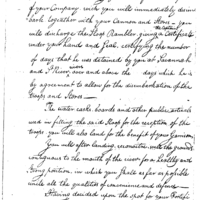 of your Company with you will immediately disem-
bark together with your Cannon and Stores - you
will discharge the Sloop Rambler, giving a Certificate
under your hand and Seal, certifying the number
of days that he was detained by you at Savannah
and over and above the days which
by agreement to allow for the disembarkation of the
Troops and Stores -
The water casks, boards and other public
used in fitting the said Sloop for the reception of the
troops you will also land for the benefit of your Garrison
You will after landing reconnoitre well the ground
contiguous to the mouth of the river for a healthy and
strong position, in which you shall as far as possible
unite all the qualities of convenience and defence -
Having decided upon the spot for your